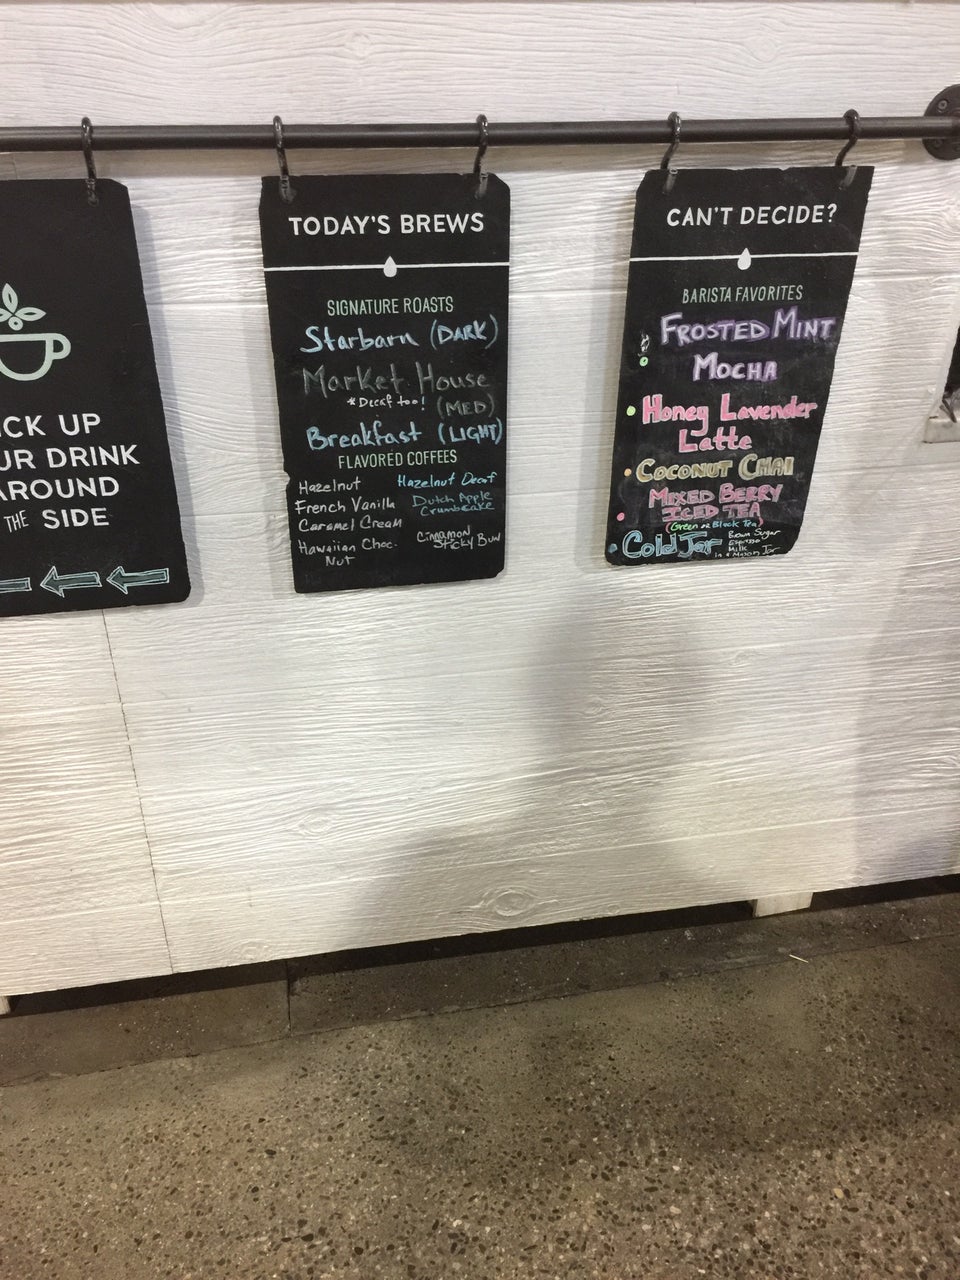 ICK UP
UR DRINK
AROUND
THE SIDE
TODAY'S BREWS
SIGNATURE ROASTS
Starbarn (DARK)
Market House
*Decaf too! (MED)
Breakfast (LIGHT)
FLAVORED COFFEES
Hazelnut
French Vanilla
Caramel Cream
Hawaiian Choc.
Nut
Hazelnut Decaf
Dutch Apple
Crumbcake
Cinnamon
Sticky Bun
CAN'T DECIDE?
BARISTA FAVORITES
FROSTED MINT
MOCHA
Honey Lavender
Latte
COCONUT CHAI
MIXED BERRY
ICED TEA
(Green or Black Tea)
Cold Jar
Brown Sugar
Espresso
Milk
in a Mason Jar